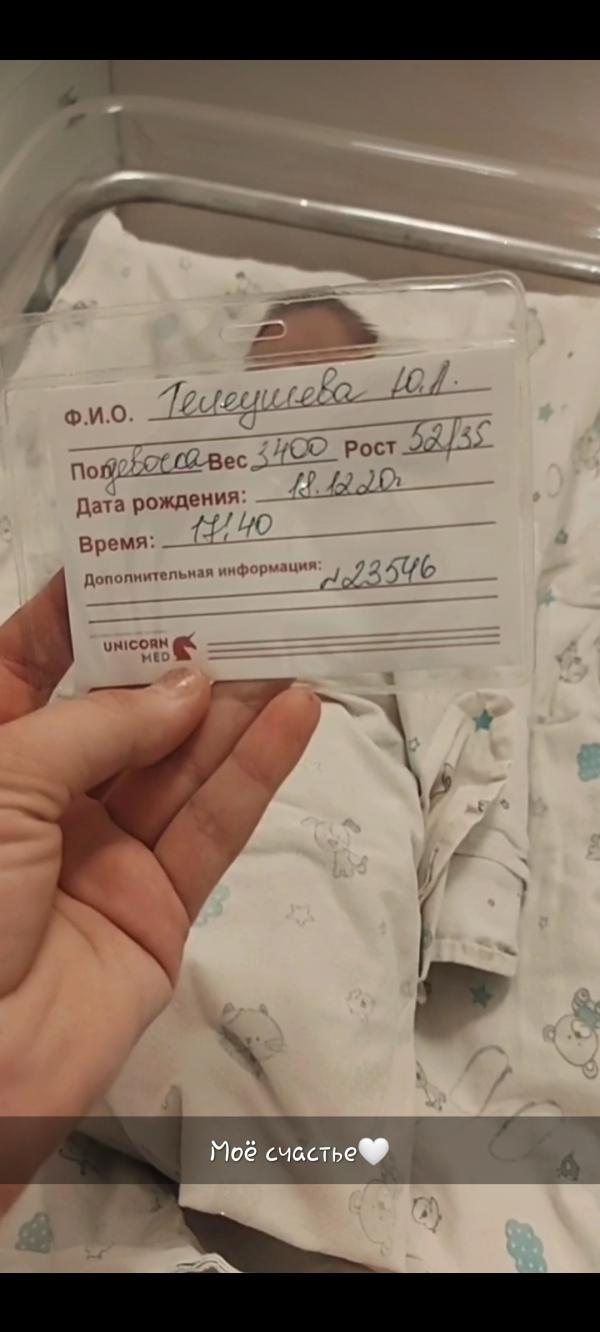 Ф.И.О. Телеушева Ю.Л.
Пол девочка Вес 3400 Рост 52/35
Дата рождения: 18.12.20г
Время: 17:40
Дополнительная информация: N23546
UNICORN
MED
Моё счастье🤍